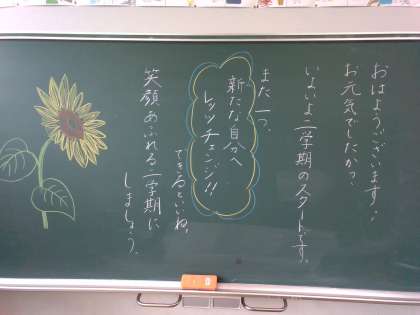 おはようございます！
お元気でしたか？
いよいよ二学期のスタートです。
また一つ、
新たな自分へ
レッツチェンジ!!
できるといいね。
笑顔あふれる二学期に
しましょう。